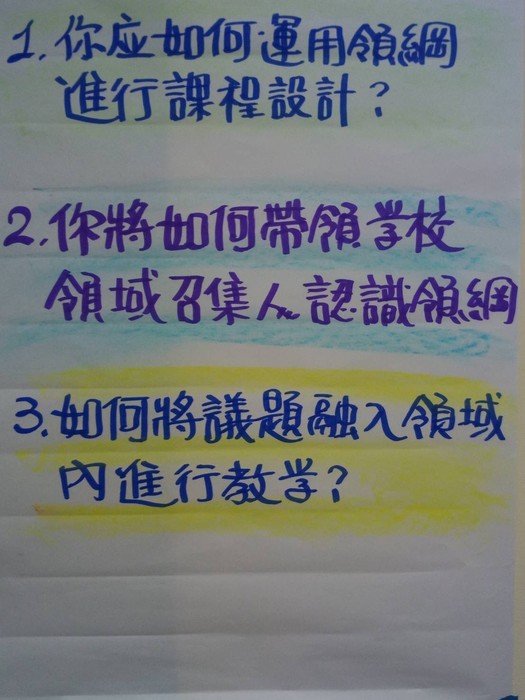 1. 你应如何運用領綱
進行課程設計?
2. 你將如何帶領学校
領域召集人認識領綱
3. 如何將議題融入領域
內進行教学?